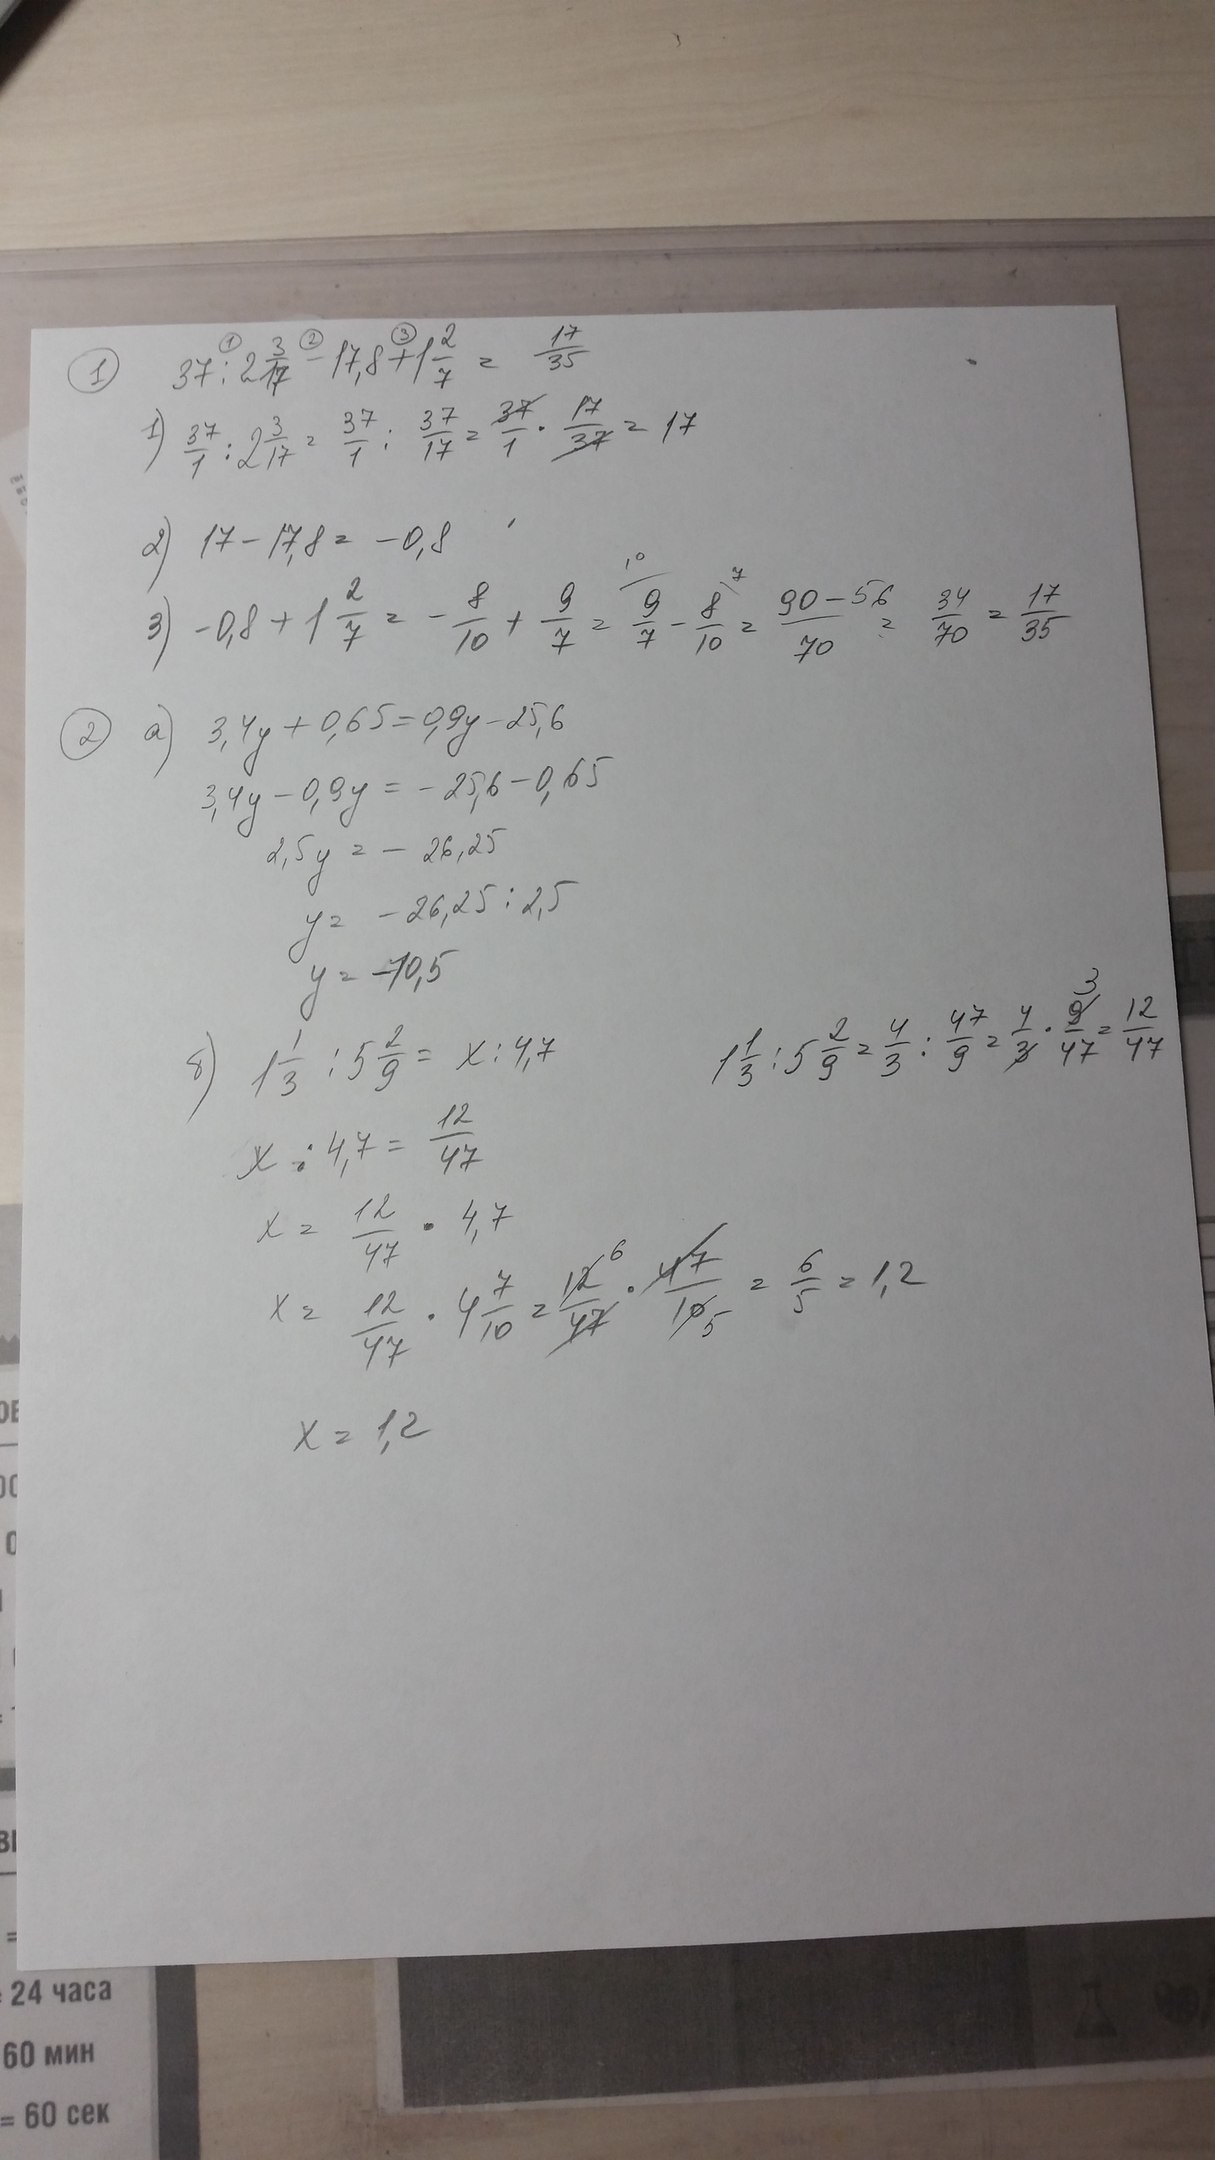 1 37 : 2 3/17 - 17,8 + 1 2/7 = 17/35
1) 37/1 : 2 3/17 = 37/1 : 37/17 = 37/1 · 17/37 = 17
2) 17 - 17,8 = -0,8
3) -0,8 + 1 2/7 = - 8/10 + 9/7 = 9/7 - 8/10 = 90-56/70 = 34/70 = 17/35
2 а) 3,4y + 0,65 = 0,9y - 25,6
3,4y - 0,9y = - 25,6 - 0,65
2,5y = - 26,25
y = - 26,25 : 2,5
y = -10,5
б) 1 1/3 : 5 2/9 = x : 4,7
1 1/3 : 5 2/9 = 4/3 : 47/9 = 4/3 · 9/47 = 12/47
x : 4,7 = 12/47
x = 12/47 · 4,7
x = 12/47 · 4 7/10 = 12/47 · 47/10 = 6/5 = 1,2
x = 1,2
= 24 часа
60 мин
= 60 сек